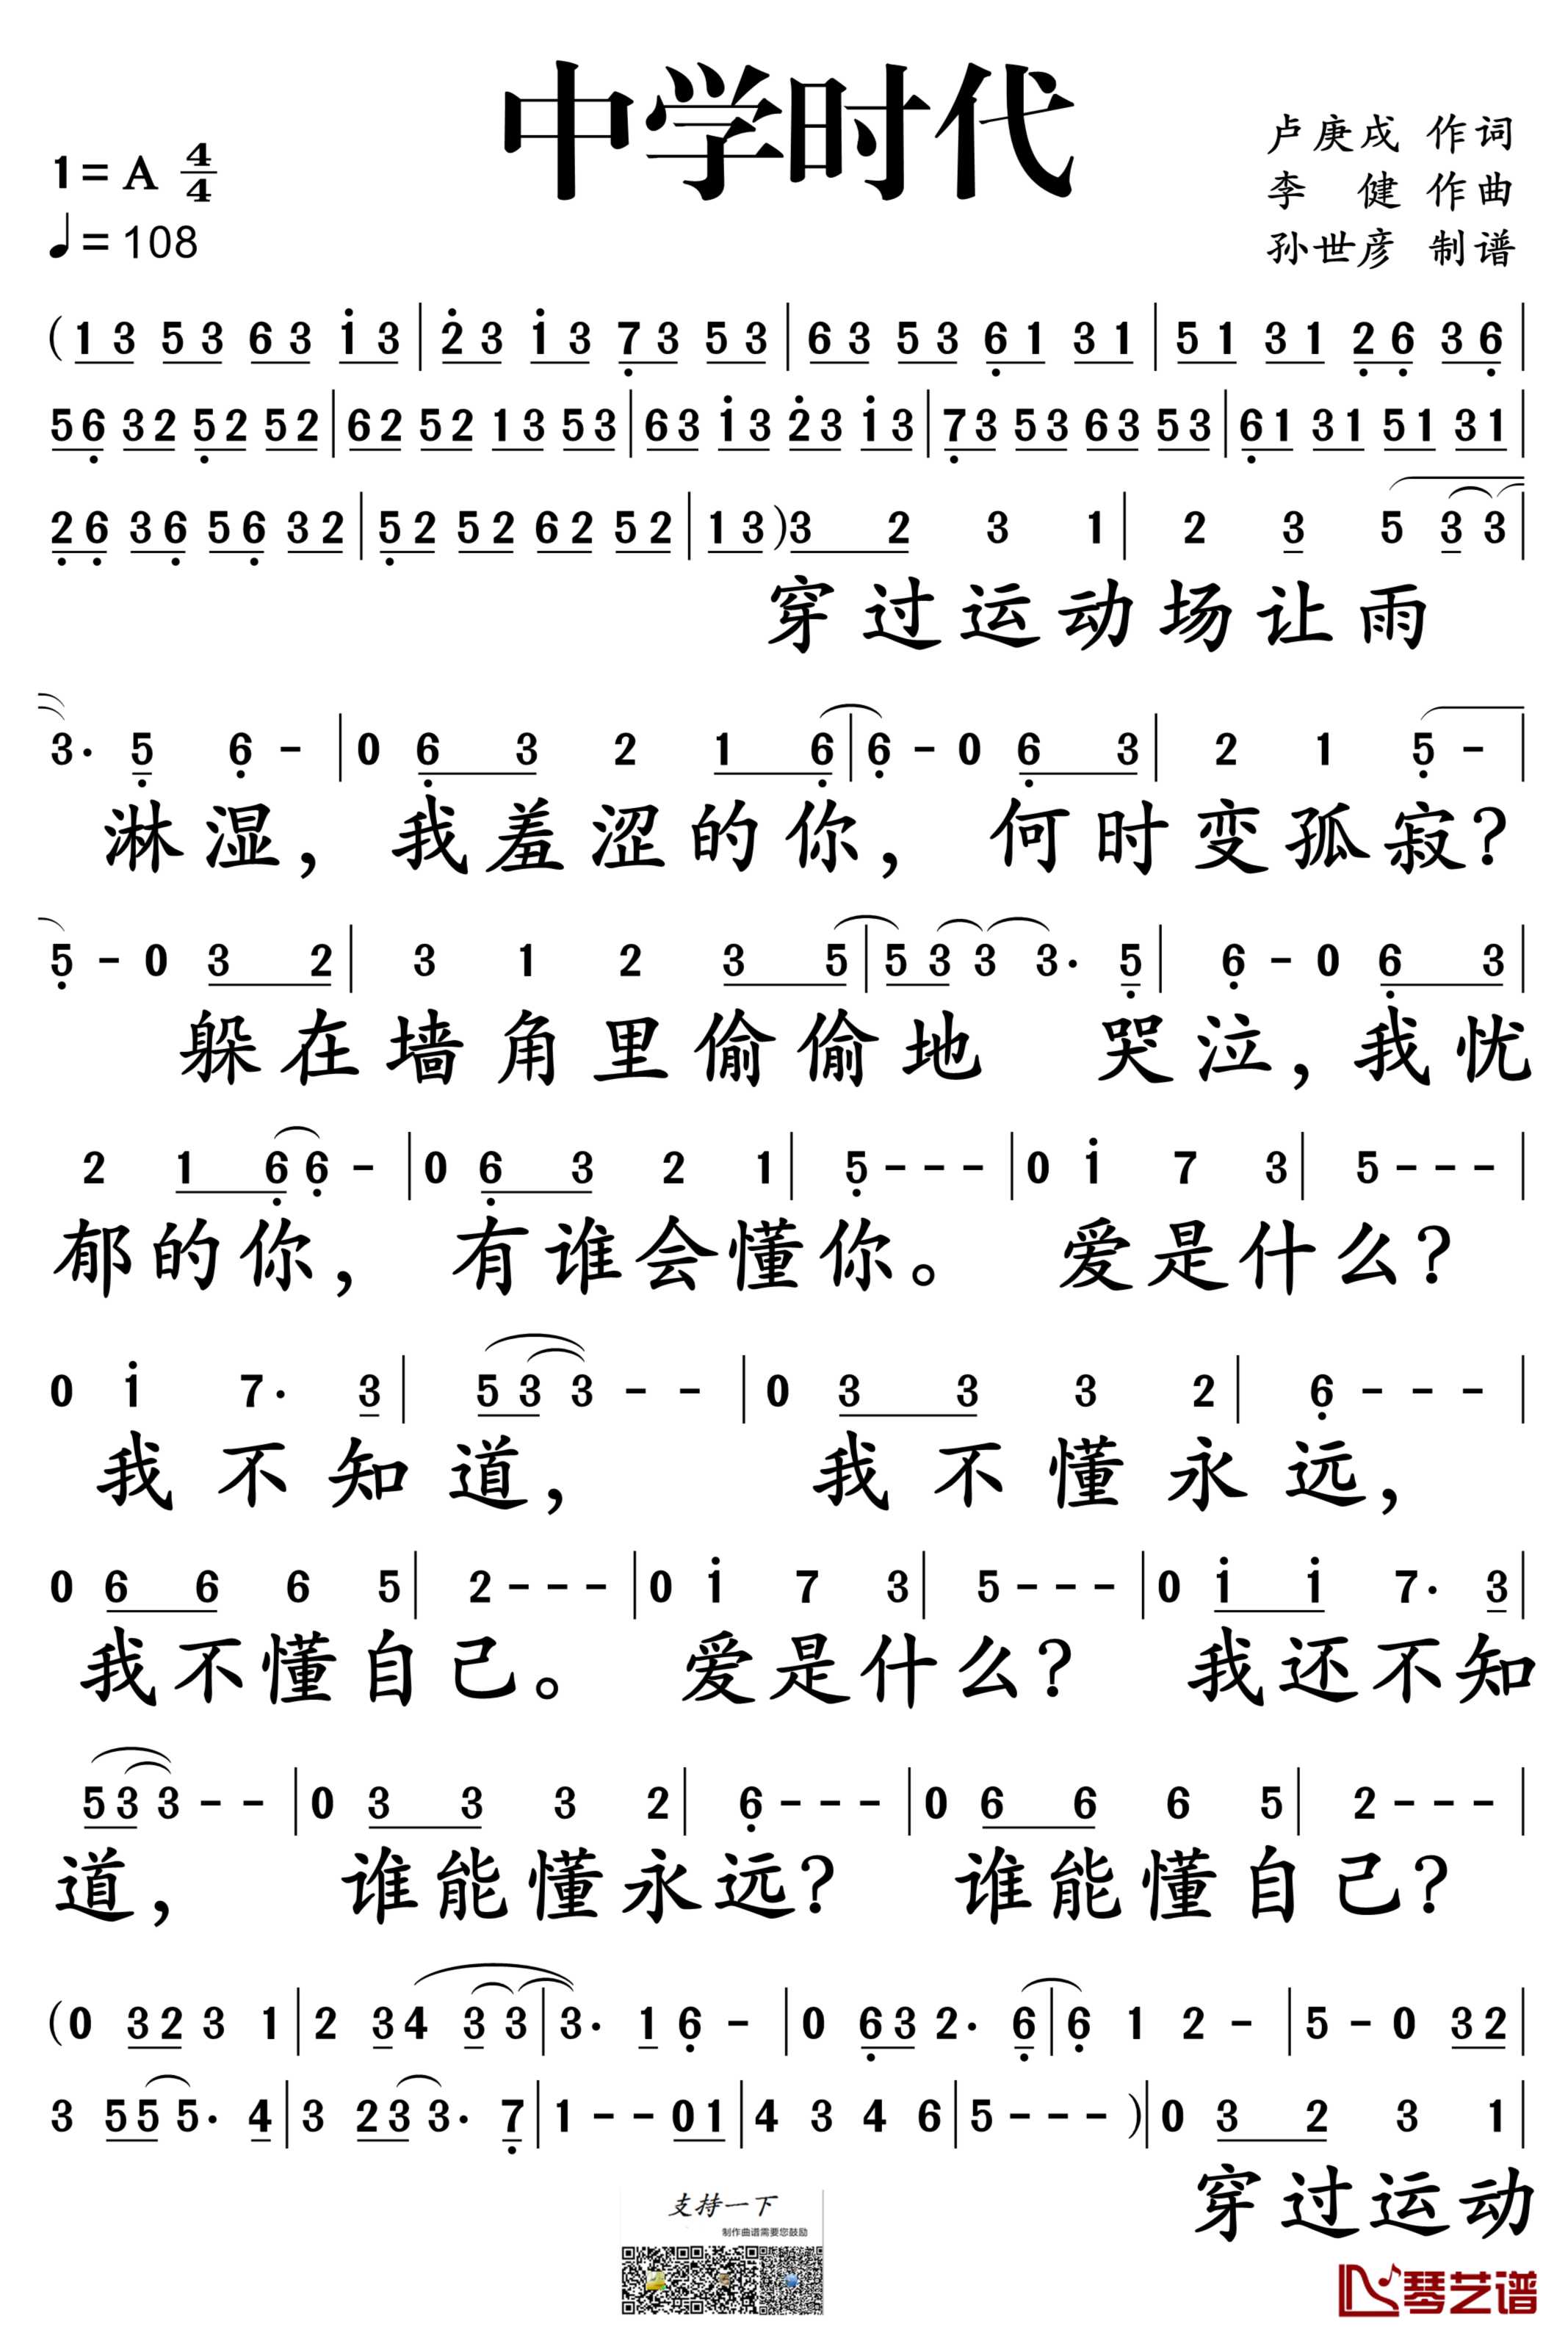 中学时代
1=A 4/4
♩=108
卢庚戌 作词
李 健 作曲
孙世彦 制谱
(1 3 5 3 6 3 i 3 | 2̇ 3 i 3 7̣ 3 5 3 | 6 3 5 3 6̣ 1 3 1 | 5 1 3 1 2̣ 6̣ 3 6̣ |
5 6̣ 3 2 5̣ 2 5 2 | 6 2 5 2 1 3 5 3 | 6 3 i 3 2̇ 3 i 3 | 7̣ 3 5 3 6 3 5 3 | 6̣ 1 3 1 5 1 3 1 |
2̣ 6̣ 3 6̣ 5 6̣ 3 2 | 5̣ 2 5 2 6 2 5 2 | 1 3) 3 2 3 1 | 2 3 5 3 3 |
穿过运动场让雨
3· 5̣ 6̣ - | 0 6̣ 3 2 1 6̣ | 6̣ - 0 6̣ 3 | 2 1 5̣ - |
淋湿，我羞涩的你，何时变孤寂？
5̣ - 0 3 2 | 3 1 2 3 5 | 5 3 3 3· 5̣ | 6̣ - 0 6̣ 3 |
躲在墙角里偷偷地 哭泣，我忧
2 1 6̣ 6̣ - | 0 6̣ 3 2 1 | 5̣ - - - | 0 i 7 3 | 5 - - - |
郁的你，有谁会懂你。爱是什么？
0 i 7· 3 | 5 3 3 - - | 0 3 3 3 2 | 6̣ - - - |
我不知道，我不懂永远，
0 6 6 6 5 | 2 - - - | 0 i 7 3 | 5 - - - | 0 i i 7· 3 |
我不懂自己。爱是什么？我还不知
5 3 3 - - | 0 3 3 3 2 | 6̣ - - - | 0 6 6 6 5 | 2 - - - |
道，谁能懂永远？谁能懂自己？
(0 3 2 3 1 | 2 3 4 3 3 | 3· 1 6̣ - | 0 6̣ 3 2· 6̣ | 6̣ 1 2 - | 5 - 0 3 2 |
3 5 5 5· 4 | 3 2 3 3· 7̣ | 1 - - 0 1 | 4 3 4 6 | 5 - - - ) | 0 3 2 3 1 |
穿过运动
支持一下
制作曲谱需要您鼓励
琴艺谱